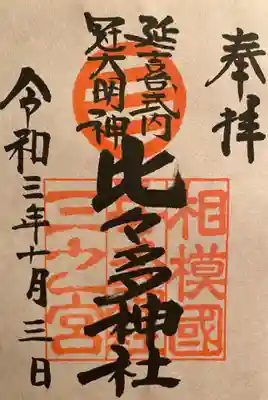 奉拝
相模國
延喜式内
冠大明神
比々多神社
三之宮
令和三年十月三日